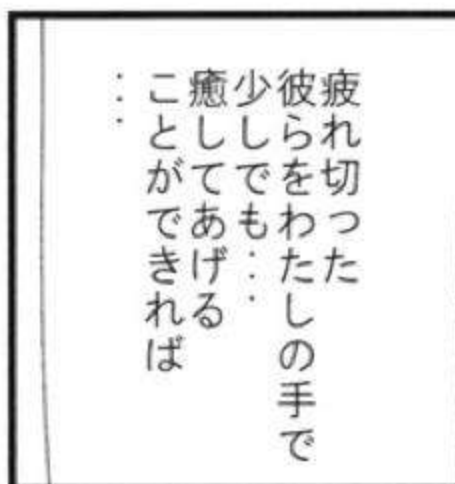 疲れ切った
彼らをわたしの手で
少しでも…
癒してあげる
ことができれば
…